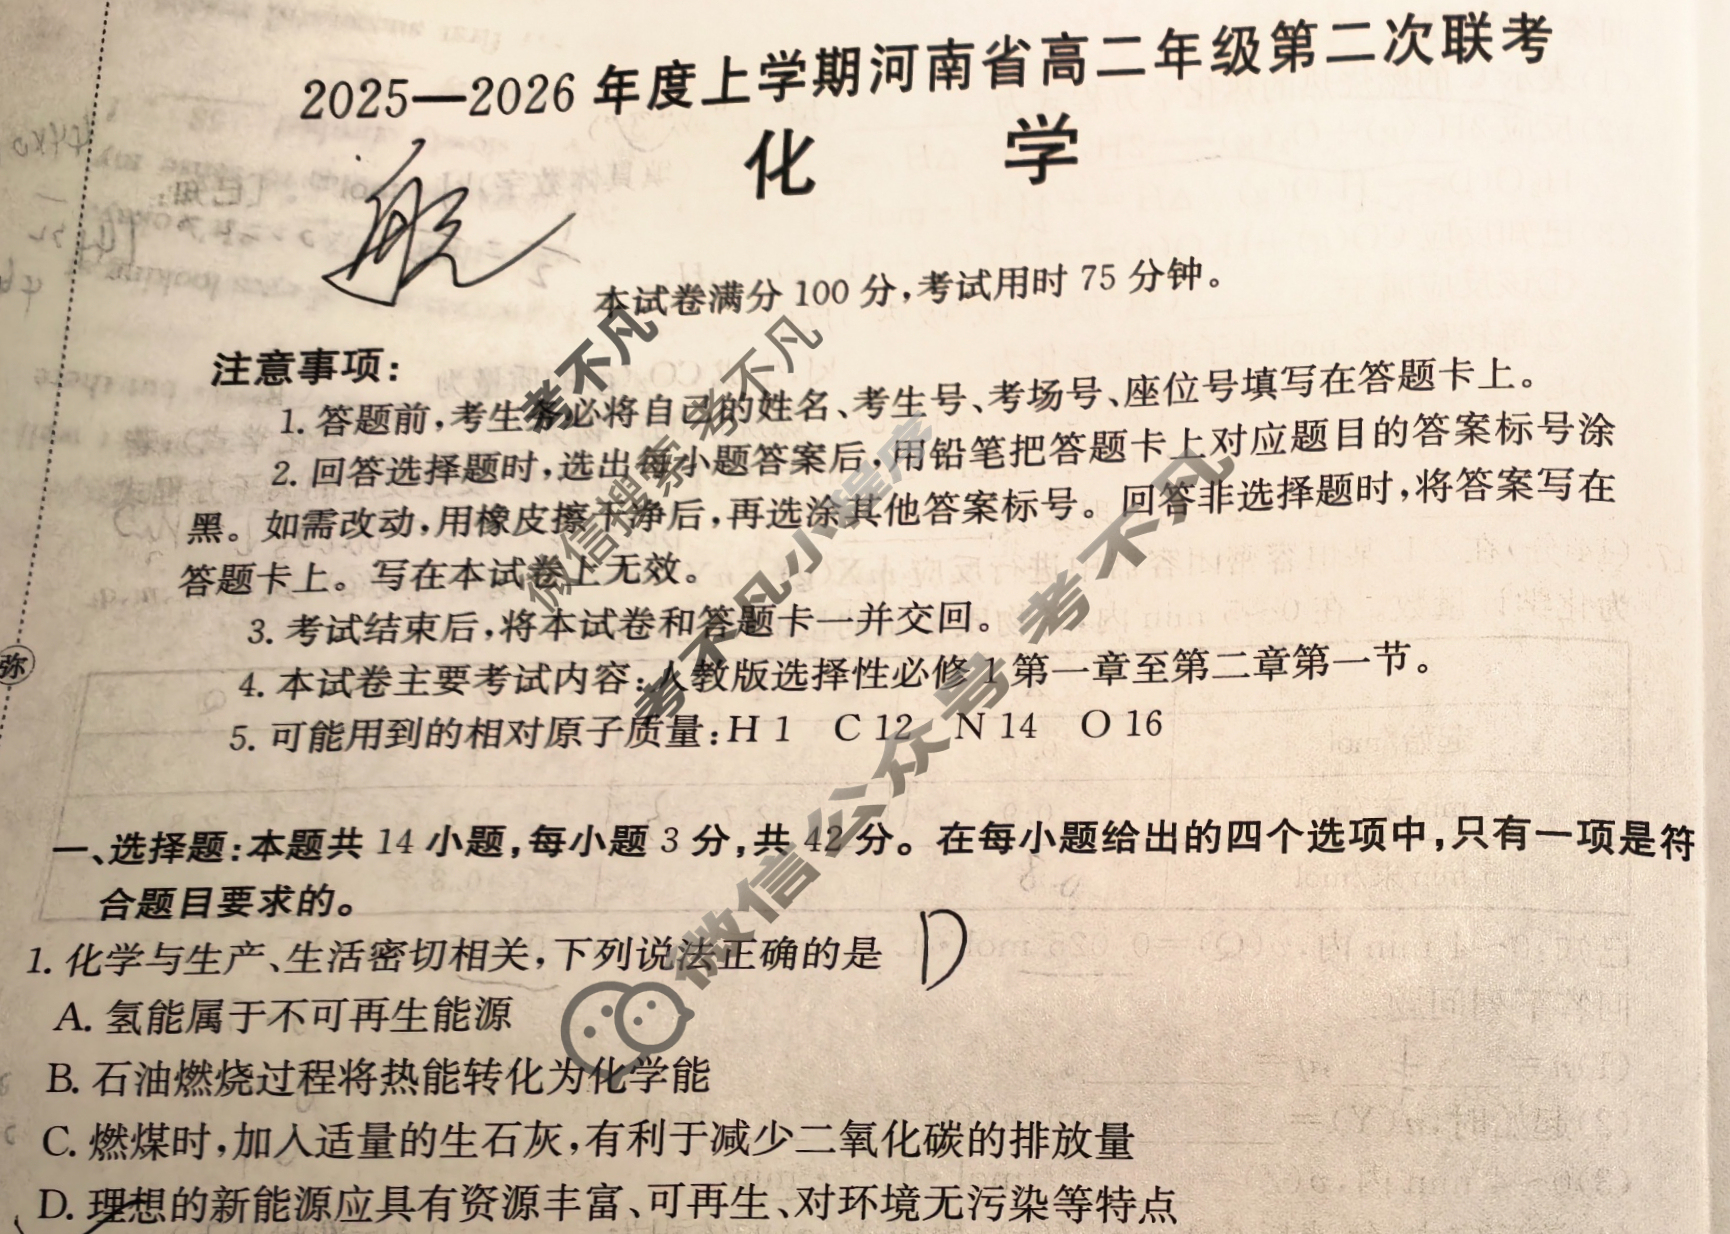 2025—2026年度上学期河南省高二年级第二次联考
化 学
本试卷满分100分,考试用时75分钟。
注意事项:
1. 答题前,考生务必将自己的姓名、考生号、考场号、座位号填写在答题卡上。
2. 回答选择题时,选出每小题答案后,用铅笔把答题卡上对应题目的答案标号涂
黑。如需改动,用橡皮擦干净后,再选涂其他答案标号。回答非选择题时,将答案写在
答题卡上。写在本试卷上无效。
3. 考试结束后,将本试卷和答题卡一并交回。
4. 本试卷主要考试内容:人教版选择性必修1第一章至第二章第一节。
5. 可能用到的相对原子质量:H 1 C 12 N 14 O 16
弥
一、选择题:本题共14小题,每小题3分,共42分。在每小题给出的四个选项中,只有一项是符
合题目要求的。
1. 化学与生产、生活密切相关,下列说法正确的是 D
A. 氢能属于不可再生能源
B. 石油燃烧过程将热能转化为化学能
C. 燃煤时,加入适量的生石灰,有利于减少二氧化碳的排放量
D. 理想的新能源应具有资源丰富、可再生、对环境无污染等特点
考不凡
微信搜索 考不凡
考不凡小程序
微信公众号 考不凡